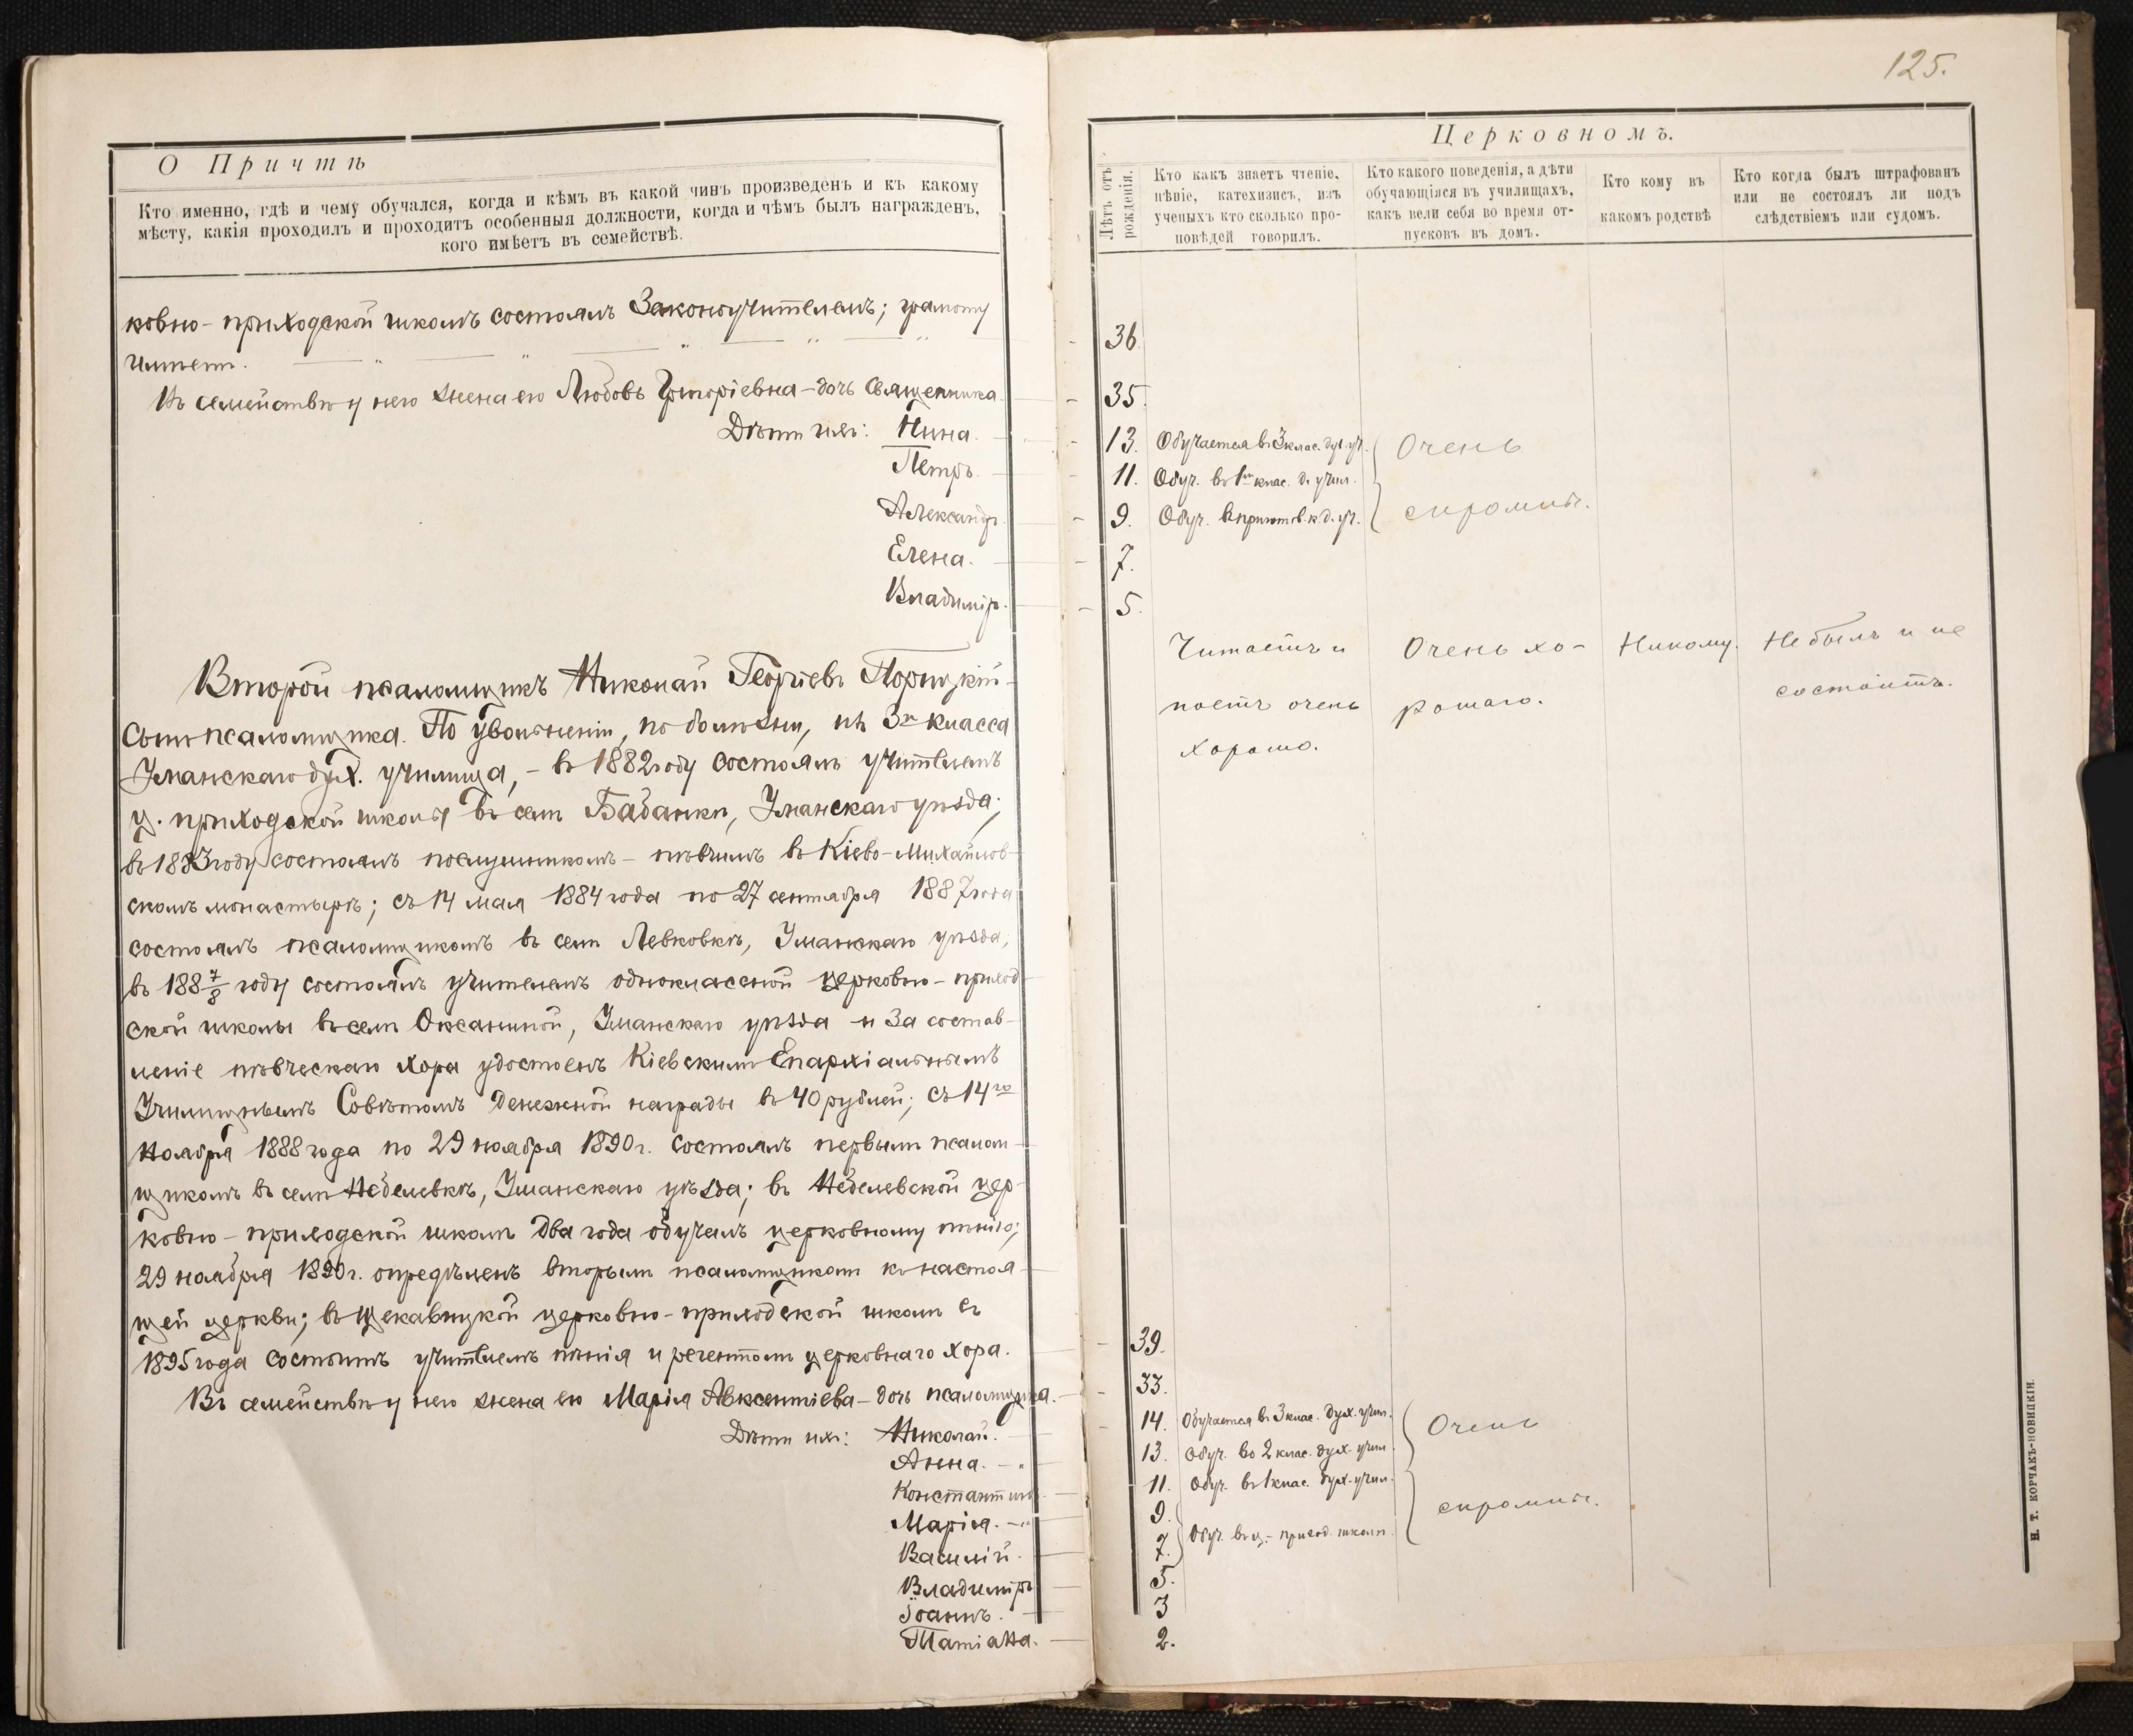 О Причтѣ
Кто именно, гдѣ и чему обучался, когда и кѣмъ въ какой чинъ произведенъ и къ какому
мѣсту, какія проходилъ и проходитъ особенныя должности, когда и чѣмъ былъ награжденъ,
кого имѣетъ въ семействѣ.
ковно-приходской школѣ состоялъ Законоучителемъ; грамоту
имѣетъ.
Въ семействѣ у него жена его Любовь Григоріевна - дочь Священника.
Дѣти ихъ: Нина.
Петръ.
Александръ.
Елена.
Владиміръ.
Второй псаломщикъ Николай Георгіевъ Порицкій -
сынъ псаломщика. По увольненіи, по болѣзни, изъ 3го класса
Уманскаго дух. училища, - въ 1882 году состоялъ учителемъ
ц. приходской школы въ селѣ Бабанки, Уманскаго уѣзда;
въ 1883 году состоялъ послушникомъ - пѣвчимъ въ Кіево-Михайлов-
скомъ монастырѣ; съ 14 мая 1884 года по 27 сентября 1887 года
состоялъ псаломщикомъ въ селѣ Левковкѣ, Уманскаго уѣзда;
въ 188 7/8 году состоялъ учителемъ одноклассной церковно-приход-
ской школы въ селѣ Оксаниной, Уманскаго уѣзда и за состав-
леніе пѣвческаго хора удостоенъ Кіевскимъ Епархіальнымъ
Училищнымъ Совѣтомъ денежной награды въ 40 рублей; съ 14го
ноября 1888 года по 29 ноября 1890 г. состоялъ первымъ псалом-
щикомъ въ селѣ Небелевкѣ, Уманскаго уѣзда; въ Небелевской цер-
ковно-приходской школѣ два года обучалъ церковному пѣнію;
29 ноября 1890 г. опредѣленъ вторымъ псаломщикомъ къ настоя-
щей церкви; въ Щекавицкой церковно-приходской школѣ съ
1895 года состоитъ учителемъ пѣнія и регентомъ церковнаго хора.
Въ семействѣ у него жена его Марія Авксентіева - дочь псаломщика.
Дѣти ихъ: Николай.
Анна.
Константинъ.
Марія.
Василій.
Владиміръ
Іоаннъ.
Татіана.
125.
Церковномъ.
Лѣтъ отъ
рожденія.
Кто какъ знаетъ чтеніе,
пѣніе, катехизисъ, изъ
ученыхъ кто сколько про-
повѣдей говорилъ.
Кто какого поведенія, а дѣти
обучающіяся въ училищахъ,
какъ вели себя во время от-
пусковъ въ домъ.
Кто кому въ
какомъ родствѣ
Кто когда былъ штрафованъ
или не состоялъ ли подъ
слѣдствіемъ или судомъ.
36.
35.
13. Обучается въ 3 клас. дух. уч. Очень
11. Обуч. въ 1м клас. д. учил.
9. Обуч. въ пригот. к. д. уч. скромны.
7.
5.
Читаетъ и Очень хо- Никому. Не былъ и не
поетъ очень рошаго. состоитъ.
хорошо.
39.
33.
14. Обучается въ 3 клас. дух. учил. Очень
13. Обуч. во 2 клас. дух. учил.
11. Обуч. въ 1 клас. дух. учил.
9. скромны.
7. Обуч. въ ц.-приход. школѣ.
5.
3
2.
Н. Т. КОРЧАКЪ-НОВИЦКІЙ.